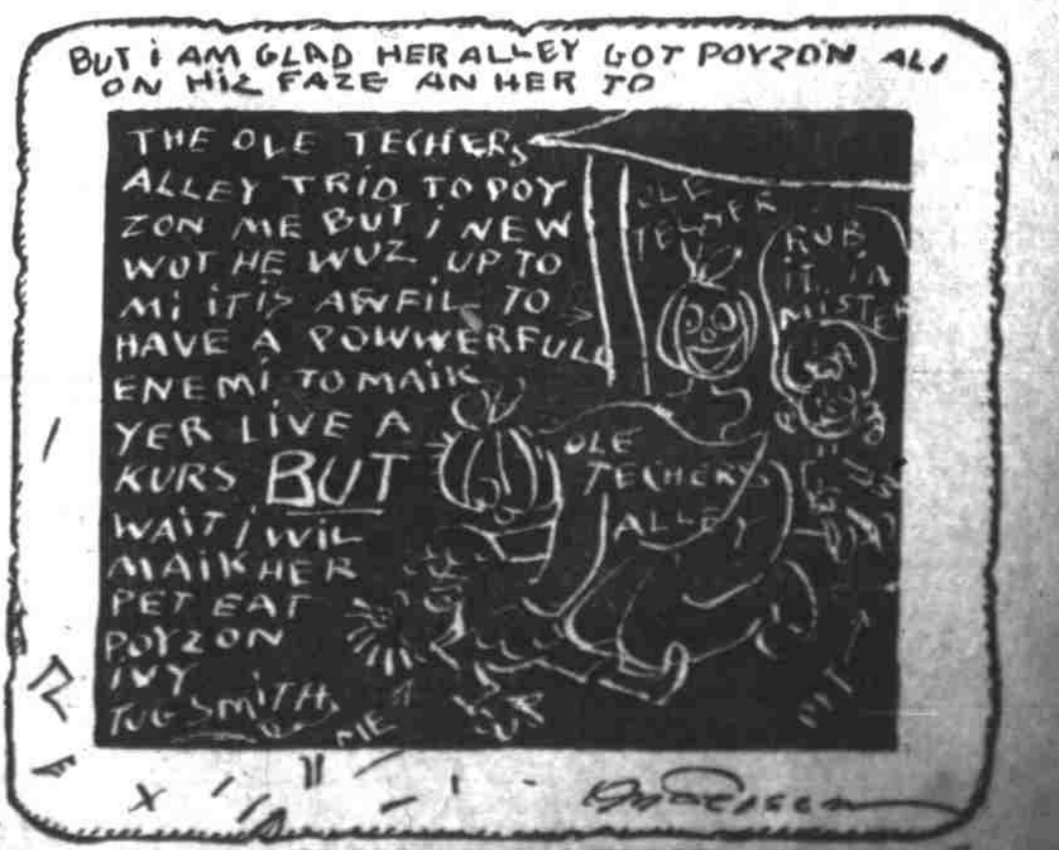 BUT i AM GLAD HER ALLEY GOT POYZON ALL
ON HIZ FAZE AN HER TO
THE OLE TECHERS
ALLEY TRID TO POY
ZON ME BUT i NEW
WOT HE WUZ UP TO
Mi iT iS AWFIL TO
HAVE A POWWERFULL
ENEMi TO MAIK
YER LIVE A
KURS BUT
WAIT i WIL
MAIK HER
PET EAT
POYZON
IVY
TUG SMiTH
ME
OLE
TECHER
RUB
iT iN
MISTER
OLE
TECHERS
ALLEY
PET